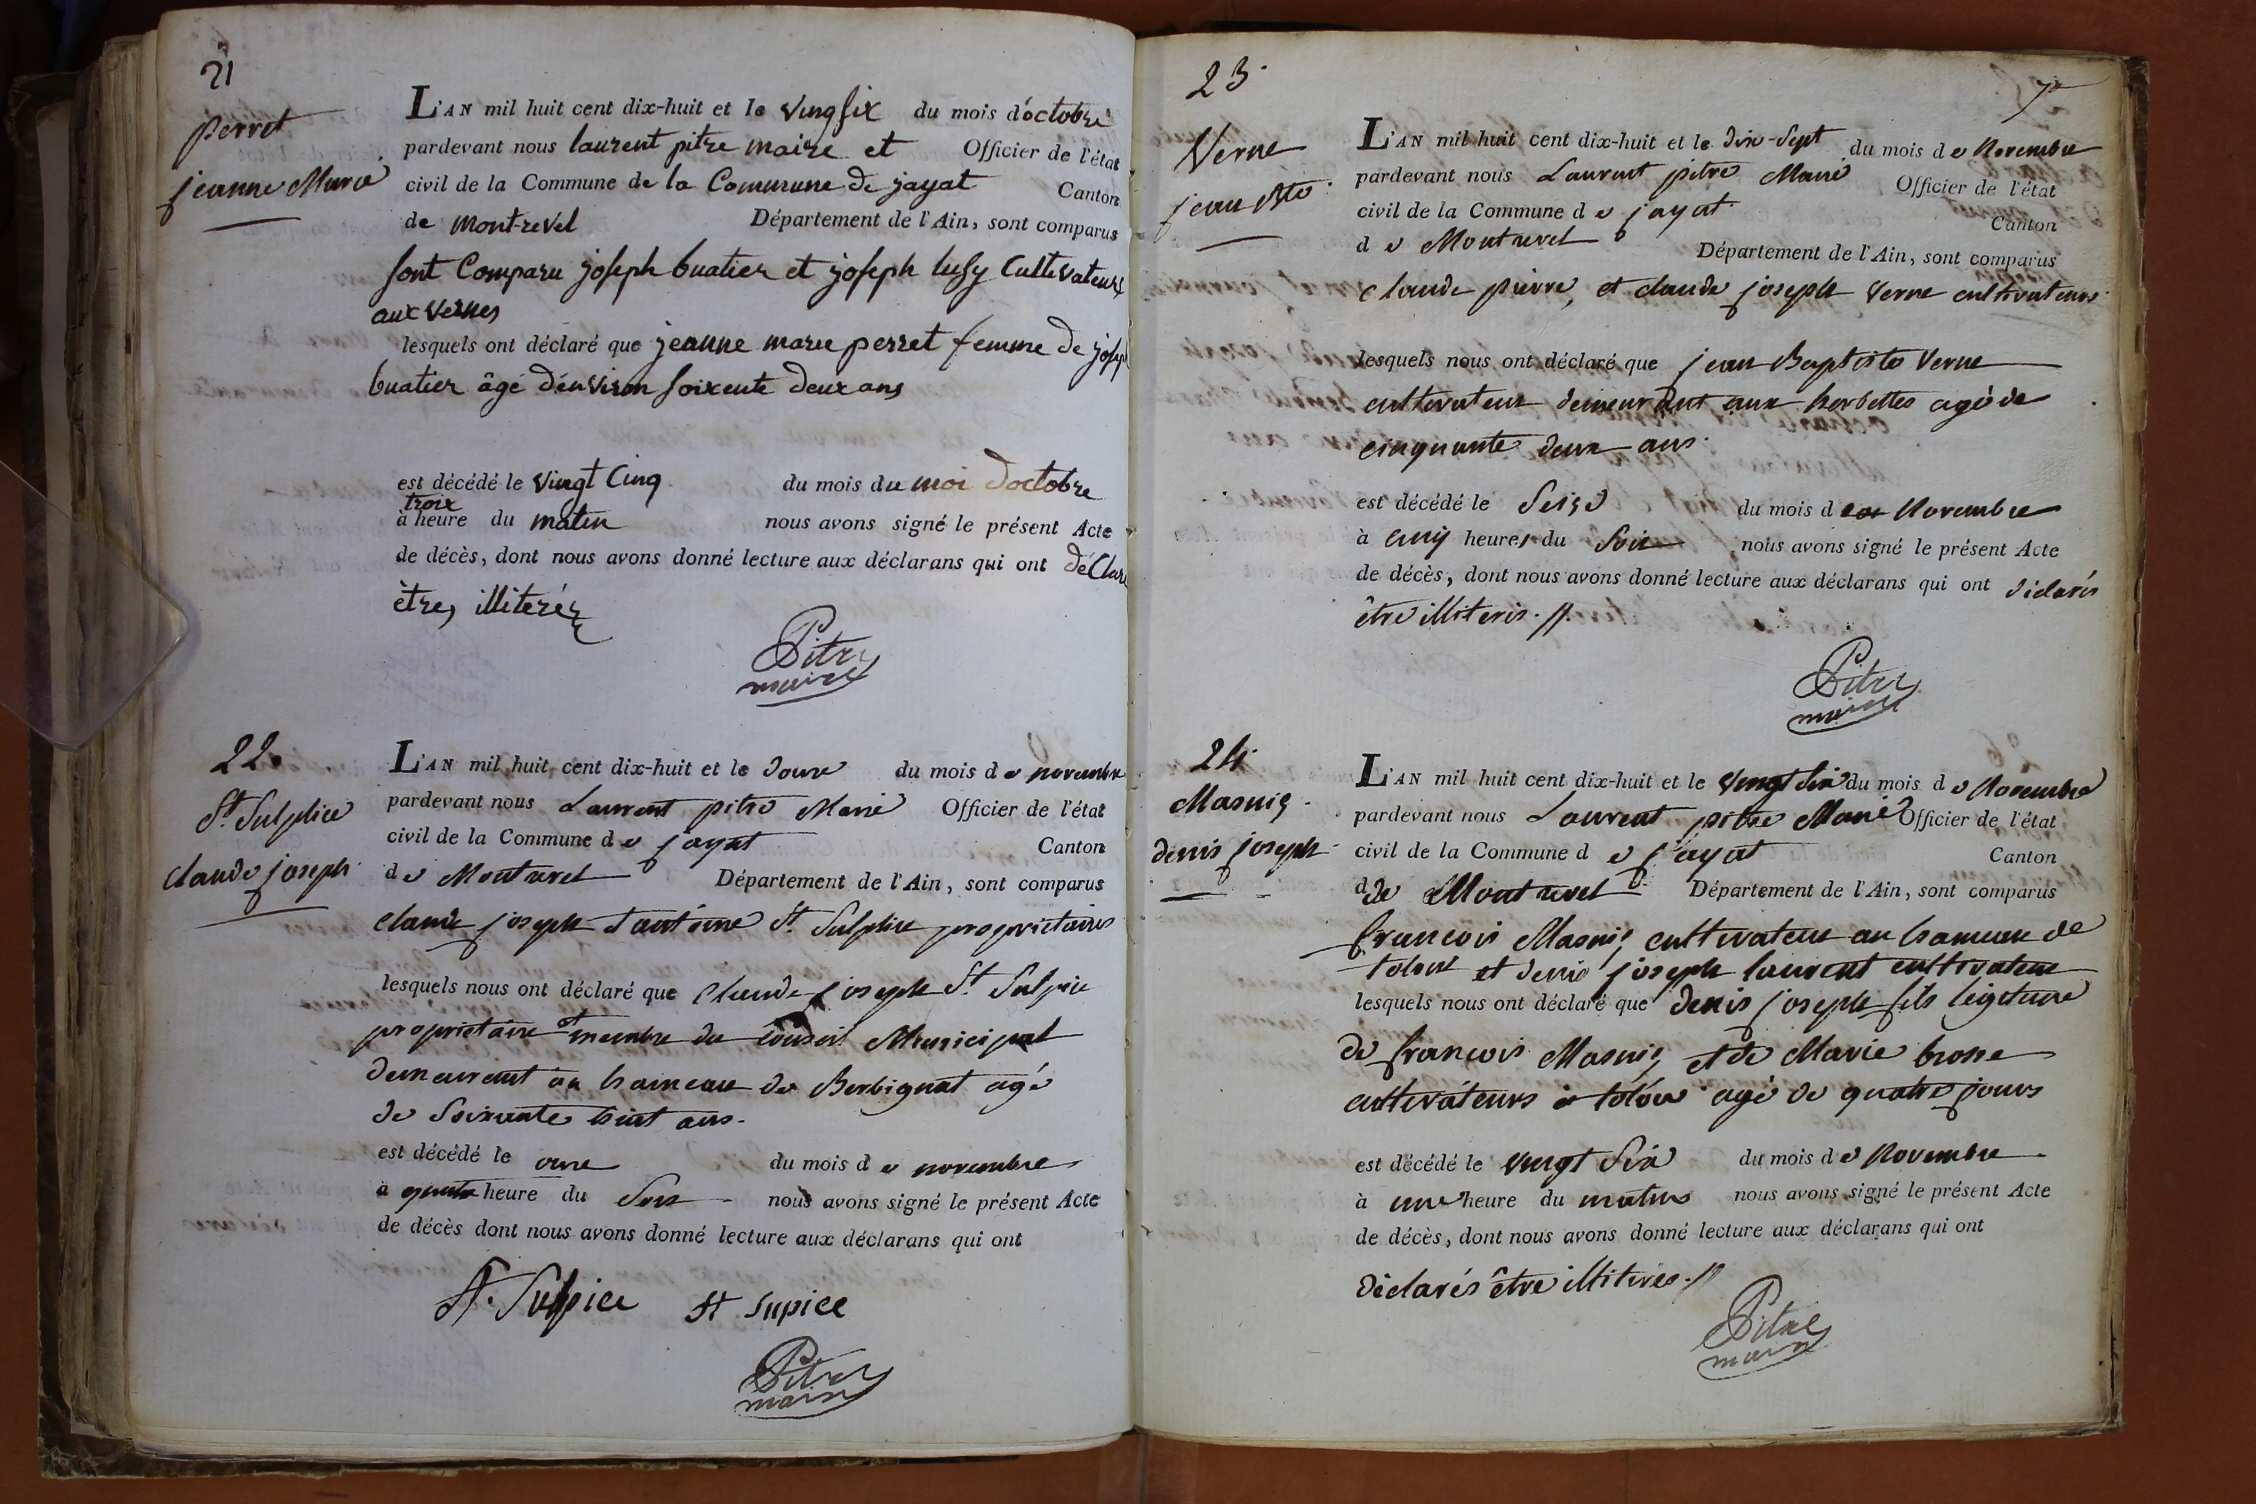 21
perret
jeanne Marie
L'AN mil huit cent dix-huit et le vingsix du mois d'octobre
pardevant nous laurent pitre maire et Officier de l'état
civil de la Commune de la Commune de jayat Canton
de montrevel Département de l'Ain, sont comparus
sont Comparu joseph buatier et joseph lusy Cultivateurs
aux vernes
lesquels ont déclaré que jeanne marie perret femme de joseph
buatier âgé d'environ soixente deux ans
est décédé le vingt Cinq du mois du moi d'octobre
troix
à heure du matin nous avons signé le présent Acte
de décès, dont nous avons donné lecture aux déclarans qui ont déClaré
êtres illiterér
Pitre
maire
22.
St. Sulplice
claude joseph
L'AN mil huit cent dix-huit et le douze du mois de novembre
pardevant nous Laurent pitre Maire Officier de l'état
civil de la Commune de jayat Canton
de Montrevel Département de l'Ain, sont comparus
claude joseph antoine St. Sulplice proprietaires
lesquels nous ont déclaré que Claude joseph St. Sulpice
proprietaire et membre du Conseil Municipal
demeurent au hameau de Berbignat agé
de Soixante huit ans.
est décédé le onze du mois de novembre
à quatre heure du Soir nous avons signé le présent Acte
de décès dont nous avons donné lecture aux déclarans qui ont
St. Sulpice St Supice
Pitre
maire
23.
7
Verne
jean Bte
L'AN mil huit cent dix-huit et le dix-Sept du mois de Novembre
pardevant nous Laurent pitre Maire Officier de l'état
civil de la Commune de jayat Canton
de Montrevel Département de l'Ain, sont comparus
claude pierre, et claude joseph Verne cultivateurs
lesquels nous ont déclaré que jean Baptiste Verne
cultivateur demeurant aux herbettes agé de
cinquante deux ans.
est décédé le Seize du mois de Novembre
à cinq heures du Soir nous avons signé le présent Acte
de décès, dont nous avons donné lecture aux déclarans qui ont déclarés
être illiteris.
Pitre
maire
24.
Masnig
denis joseph
L'AN mil huit cent dix-huit et le vingt Six du mois de Novembre
pardevant nous Laurent pitre Maire Officier de l'état
civil de la Commune de jayat Canton
d de Montrevel Département de l'Ain, sont comparus
françois Masnig cultivateur au hameau de
et denis joseph laurent cultivateur
lesquels nous ont déclaré que denis joseph fils légitime
de françois Masnig et de Marie brosse
cultivateurs à agé de quatre jours
est décédé le vingt Six du mois de Novembre
à une heure du matin nous avons signé le présent Acte
de décès, dont nous avons donné lecture aux déclarans qui ont
déclarés être illitires.
Pitre
maire